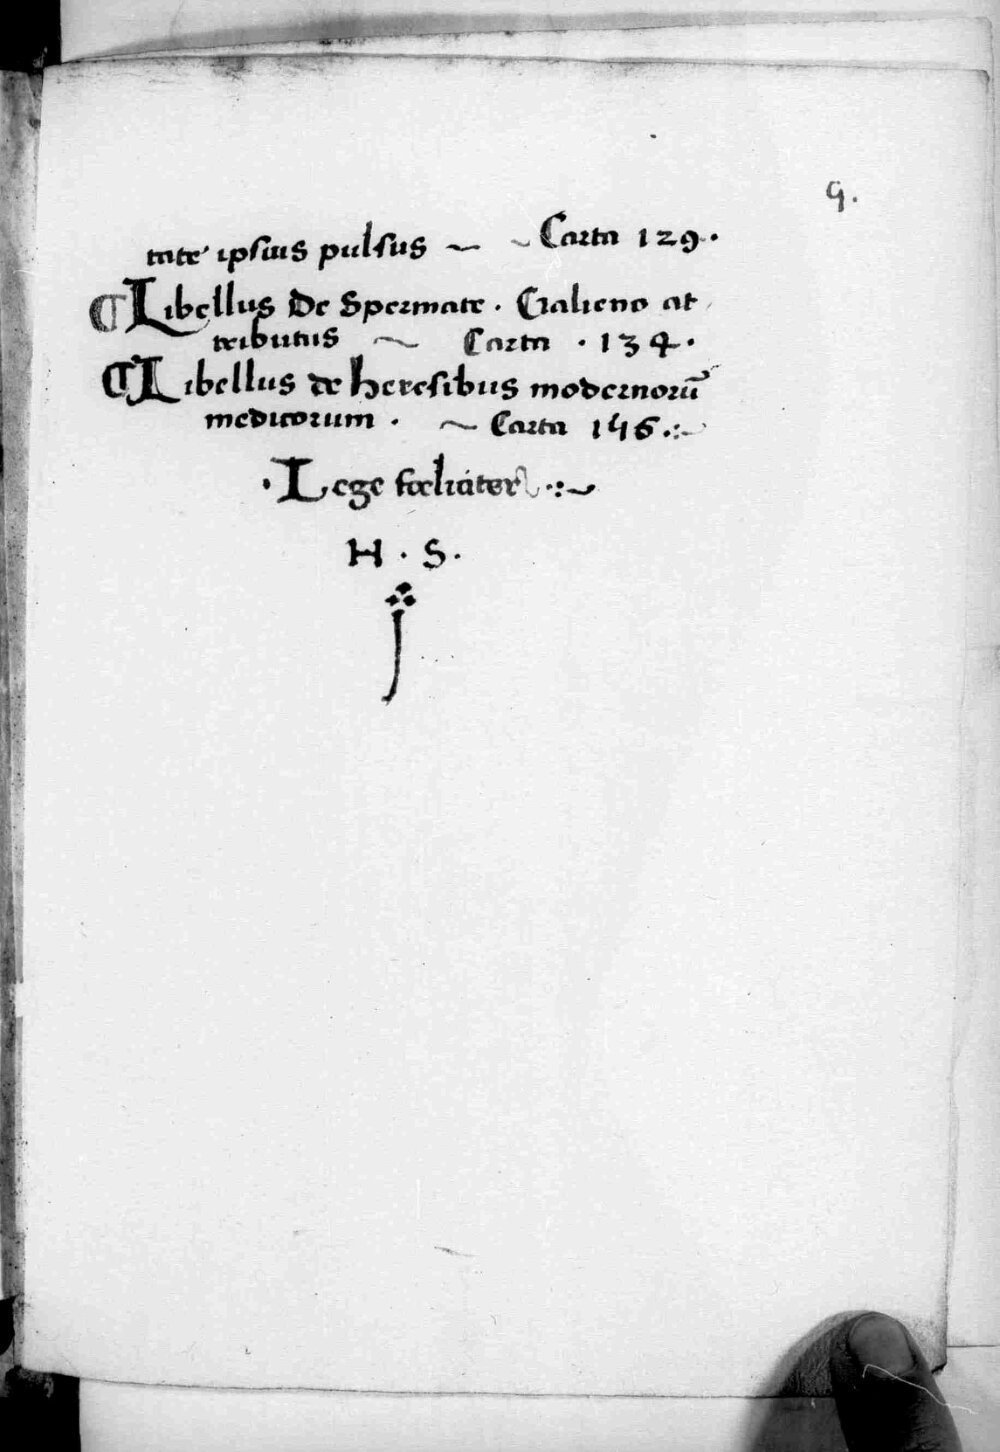 9.
tate ipsius pulsus ~ ~ Carta 129.
¶ Libellus De Spermate. Galieno at
tributus ~ Carta . 134.
¶ Libellus de heresibus modernorū
medicorum . ~ Carta 146.:~
. Lege fœliciter .:~
H . S .